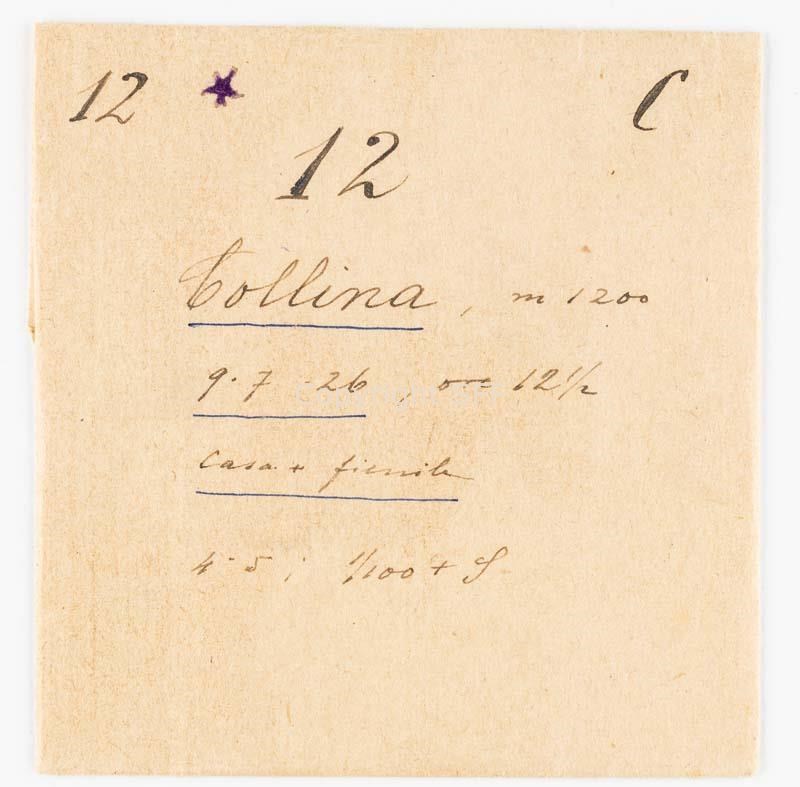 12 C
12
Collina, m 1200
9.7.26, ore 12 1/2
casa + fienile
4.5; 1/100 + S